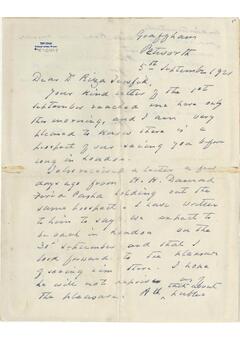 Graffham
Petworth
5th September 1921
Dear Dr Riza Tewfik,
Your kind letter of the 1st
September reached me here only
this morning, and I am very
pleased to know there is a
prospect of our seeing you before
long in London.
I also received a letter a few
days ago from H. H. Damad
Ferid Pasha holding out the
same prospect. I have written
to him to say we expect to
be back in London on the
30th September and that I
look forward to the pleasure
of seeing him there. I hope
he will not
the pleasure.